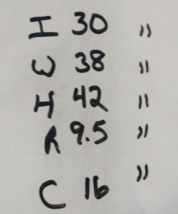 I 30 "
W 38 "
H 42 "
R 9.5 "
C 16 "